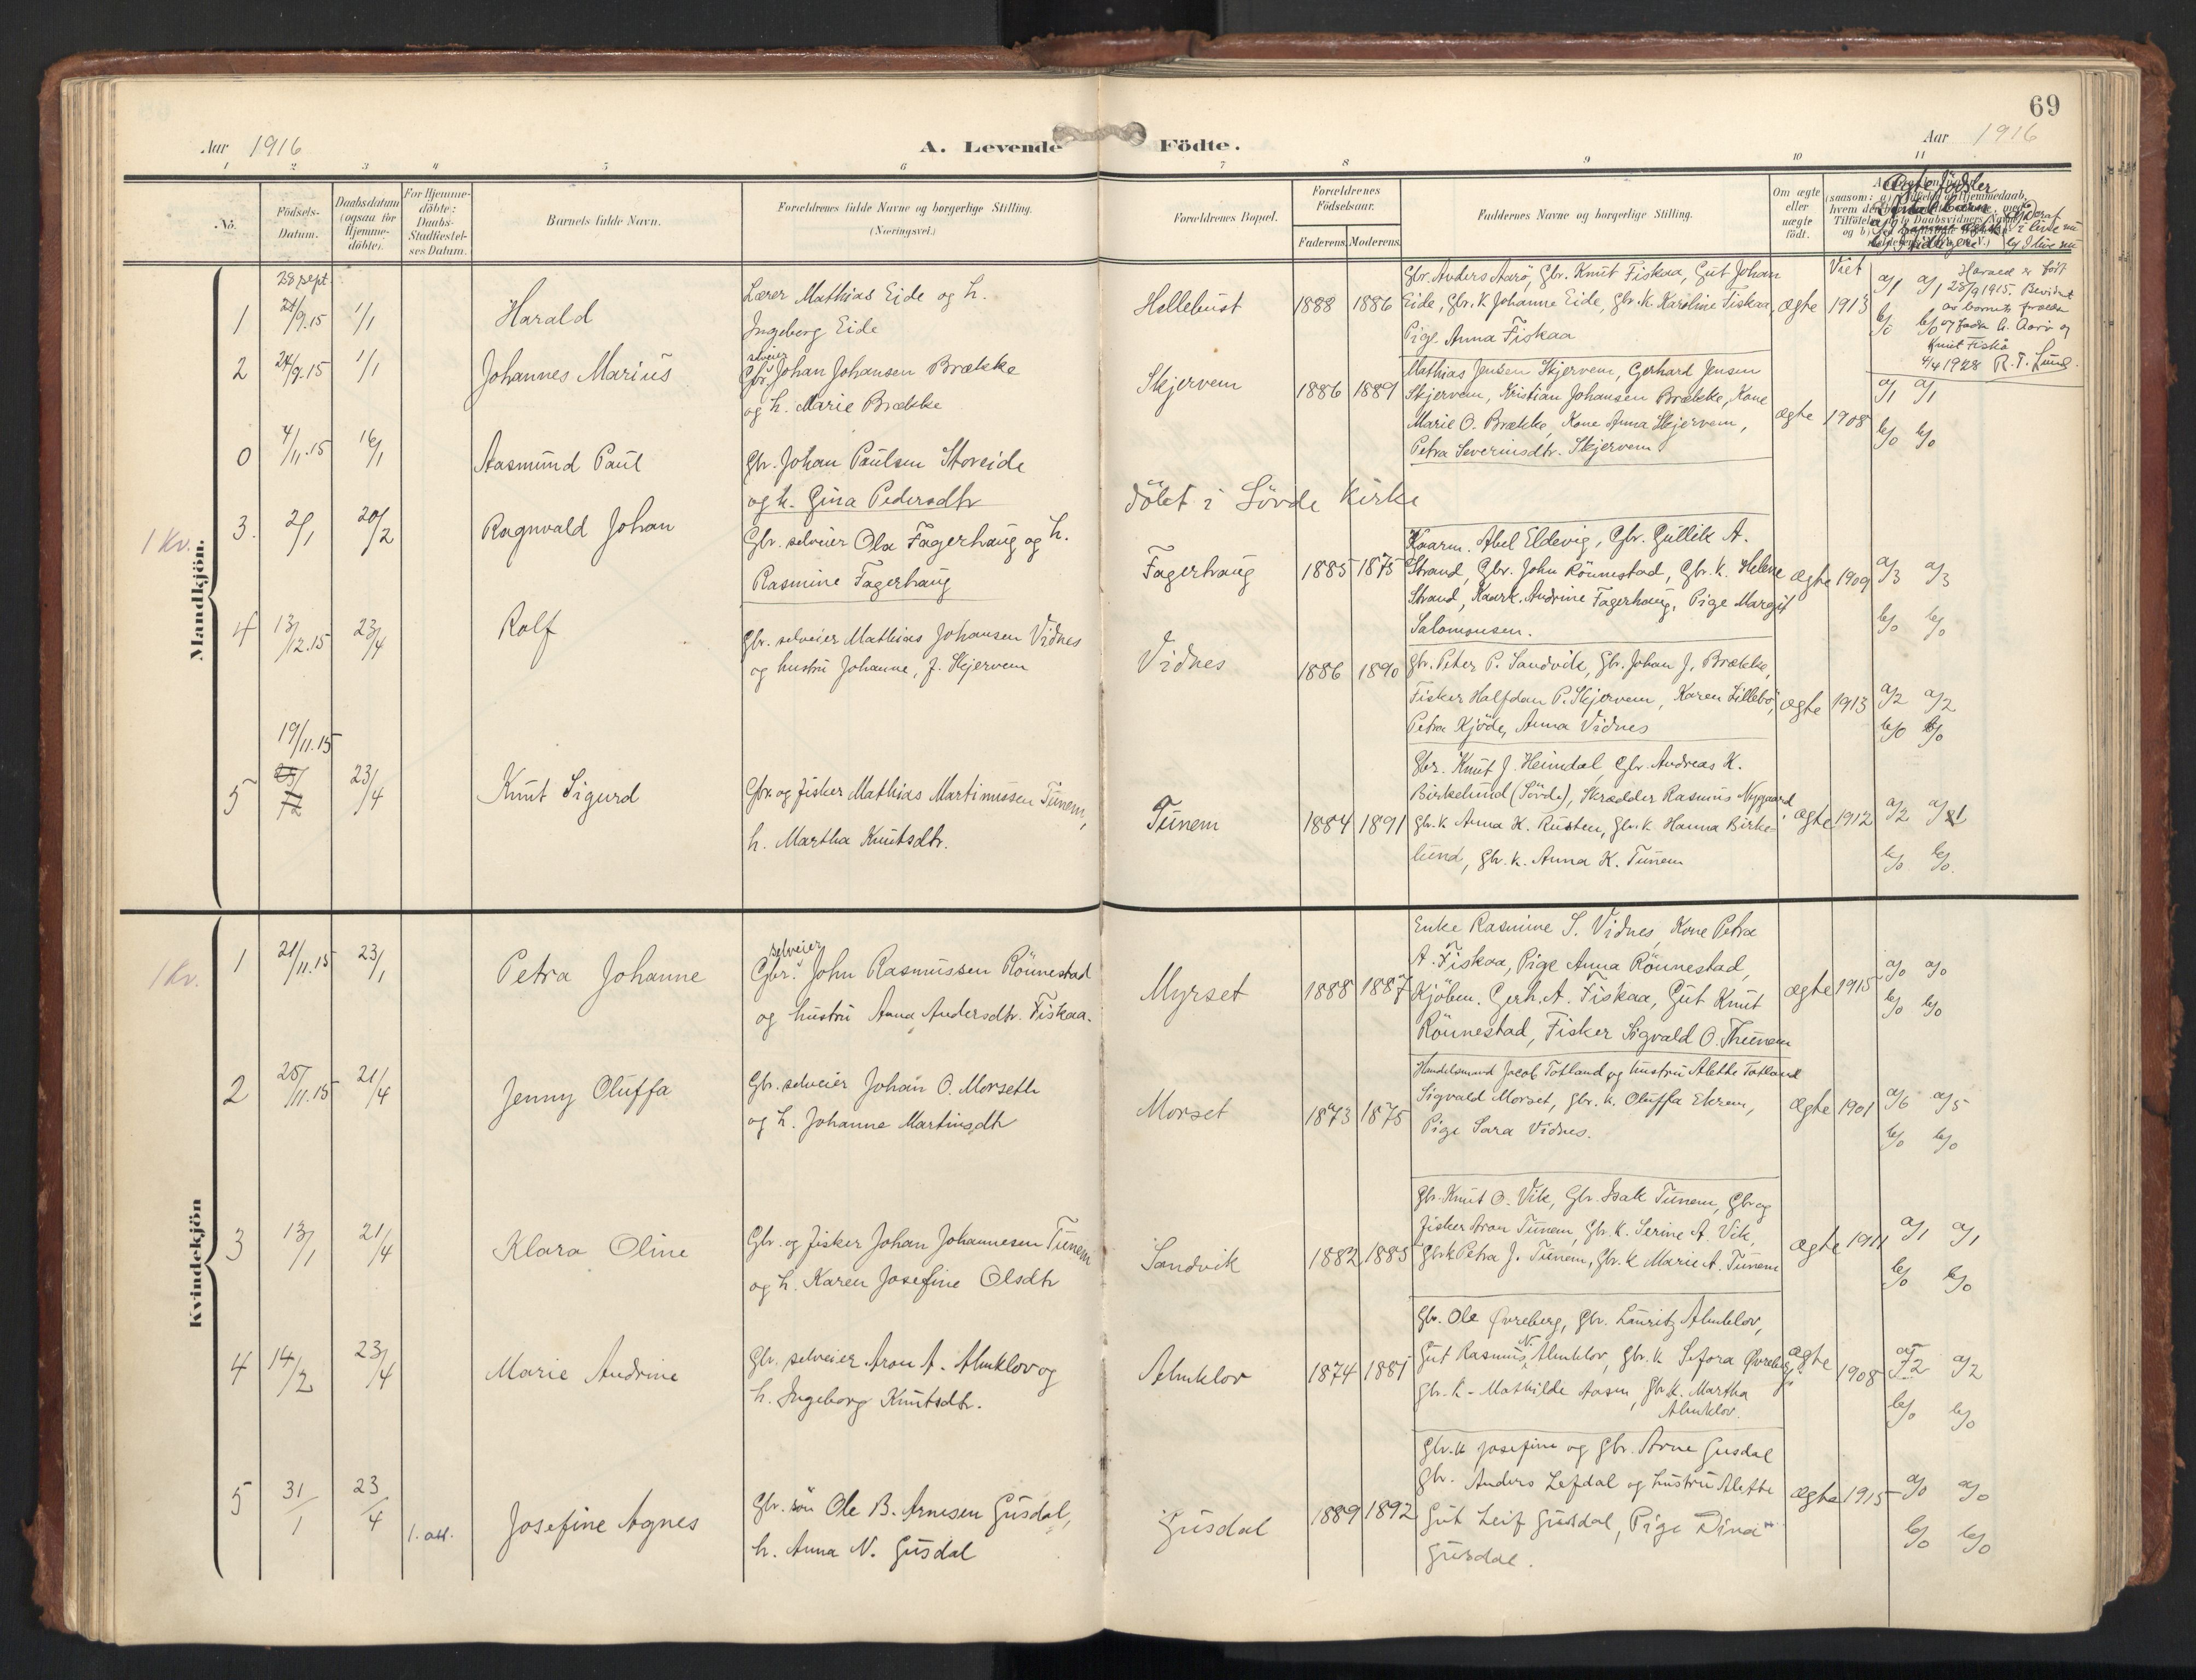 69
Aar 1916
A. Levende Födte.
Aar 1916
1 2 3 4 5 6 7 8 9 10 11
No.
Födsels-
Datum.
Daabsdatum
(ogsaa for
Hjemme-
döbte).
For Hjemme-
döbte:
Daabs-
Stadfæstel-
ses Datum.
Barnets fulde Navn.
Forældrenes fulde Navne og borgerlige Stilling.
(Næringsvei.)
Forældrenes Bopæl.
Forældrenes
Födselsaar.
Faderens. Moderens.
Faddernes Navne og borgerlige Stilling.
Om ægte
eller
uægte
födt.
Mandkjön.
1 Kv.
28 sept.
1 28/9.15 1/1 Harald
Lærer Mathias Eide og h.
Ingeborg Eide
Hellebust 1888 1886
Gbr. Anders Aarö, Gbr. Knut Fiskaa, Gut Johan
Eide, Gbr. k Johanne Eide, Gbr. k. Karoline Fiskaa,
Pige Anna Fiskaa
ægte Viet 1913
a/1 a/1
b/0 b/0
Harald er født
28/9 1915. Bevidnet
av barnets forælder
og fadder A. Aarö og
Knut Fiskå
4/4 1928 R. T. Lund.
2 24/9.15 1/1 Johannes Marius
selveier
Gbr. Johan Johansen Brække
og h. Marie Brække
Skjervem 1886 1889
Mathias Jensen Skjervem, Gerhard Jensen
Skjervem, Kristian Johansen Brække, Kone
Marie O. Brække, Kone Anna Skjervem,
Petra Severinsdtr. Skjervem
ægte 1908
a/1 a/1
b/0 b/0
0 4/11.15 16/1 Aasmund Paul
Gbr. Johan Paulsen Storeide
og h. Gina Pedersdtr
döbt i Sövde Kirke
3. 2/1 20/2 Ragnvald Johan
Gbr. selveier Ola Fagerhaug og h.
Rasmine Fagerhaug
Fagerhaug 1885 1875
Kaarm. Abel Eldevig, Gbr. Gullik A.
Strand, Gbr. John Rönnestad, Gbr. k. Helene
Strand, Kaark. Andrine Fagerhaug, Pige Margit
Salomonsen.
ægte 1909
a/3 a/3
b/0 b/0
4 13/12.15 23/4 Rolf
Gbr. selveier Mathias Johansen Vidnes
og hustru Johanne, f. Skjervem
Vidnes 1886 1890
Gbr. Peter P. Sandvik, Gbr. Johan J. Brække,
Fisker Halfdan P. Skjervem, Karen Lillebö,
Petra Kjöde, Anna Vidnes
ægte 1913
a/2 a/2
b/0 b/0
19/11.15
5 23/4 Knut Sigurd
Gbr. og fisker Mathias Martinussen Tunem,
h. Martha Knutsdtr.
Tunem 1884 1891
Gbr. Knut J. Heimdal, Gbr. Andreas K.
Birkelund (Sövde), Skrædder Rasmus Nygaard
Gbr. k Anna K. Rusten, Gbr. k Hanna Birke-
lund, Gbr. k. Anna K. Tunem
ægte 1912
a/2 a/1
b/0 b/0.
Kvindekjön
1 Kv.
1 21/11.15 23/1 Petra Johanne
selveier
Gbr. John Rasmussen Rönnestad
og hustru Anna Andersdtr. Fiskaa.
Myrset 1888 1887
Enke Rasmine S. Vidnes, Kone Petra
A. Fiskaa, Pige Anna Rönnestad,
Kjöbm. Gerh. A. Fiskaa, Gut Knut
Rönnestad, Fisker Sigvald O. Thunem
ægte 1915
a/0 a/0
b/0 b/0
2 25/11.15 21/4 Jenny Oluffa
Gbr. selveier Johan O. Morseth
og h. Johanne Martinsdtr
Morset 1873 1875
Handelsmand Jacob Totland og hustru Alethe Totland
Sigvald Morset, Gbr. k. Oluffa Ekrem,
Pige Sara Vidnes.
ægte 1901
a/6 a/5
b/0 b/0
3 13/1 21/4 Klara Oline
Gbr. og fisker Johan Johannesen Tunem
og h. Karen Josefine Olsdtr
Sandvik 1882 1885
Gbr. Knut O. Vik, Gbr. Isak Tunem, Gbr og
fisker Aron Tunem, Gbr. k. Serine A. Vik,
Gbr. k Petra J. Tunem, Gbr. k Marie A. Tunem
ægte 1911
a/1 a/1
b/0 b/0
4 14/2 23/4 Marie Andrine
Gbr. selveier Aron A. Almklov og
h. Ingeborg Knutsdtr.
Almklov 1874 1881
Gbr. Ole Øvreberg, Gbr. Lauritz Almklov,
Gut Rasmus N. Almklov, Gbr. k Sefora Øvreberg,
Gbr. k. Mathilde Aasen, Gbr. k. Martha
Almklov.
ægte 1908
a/2 a/2
b/0 b/0
5 31/1 23/4 Josefine Agnes
Gbr. søn Ole B. Arnesen Gusdal,
h. Anna N. Gusdal
Gusdal 1889 1892
Gbr. k Josefine og Gbr. Arne Gusdal
Gbr. Anders Lefdal og hustru Alette
Gut Leif Gusdal, Pige Dina
Gusdal.
ægte 1915
a/0 a/0
b/0 b/0